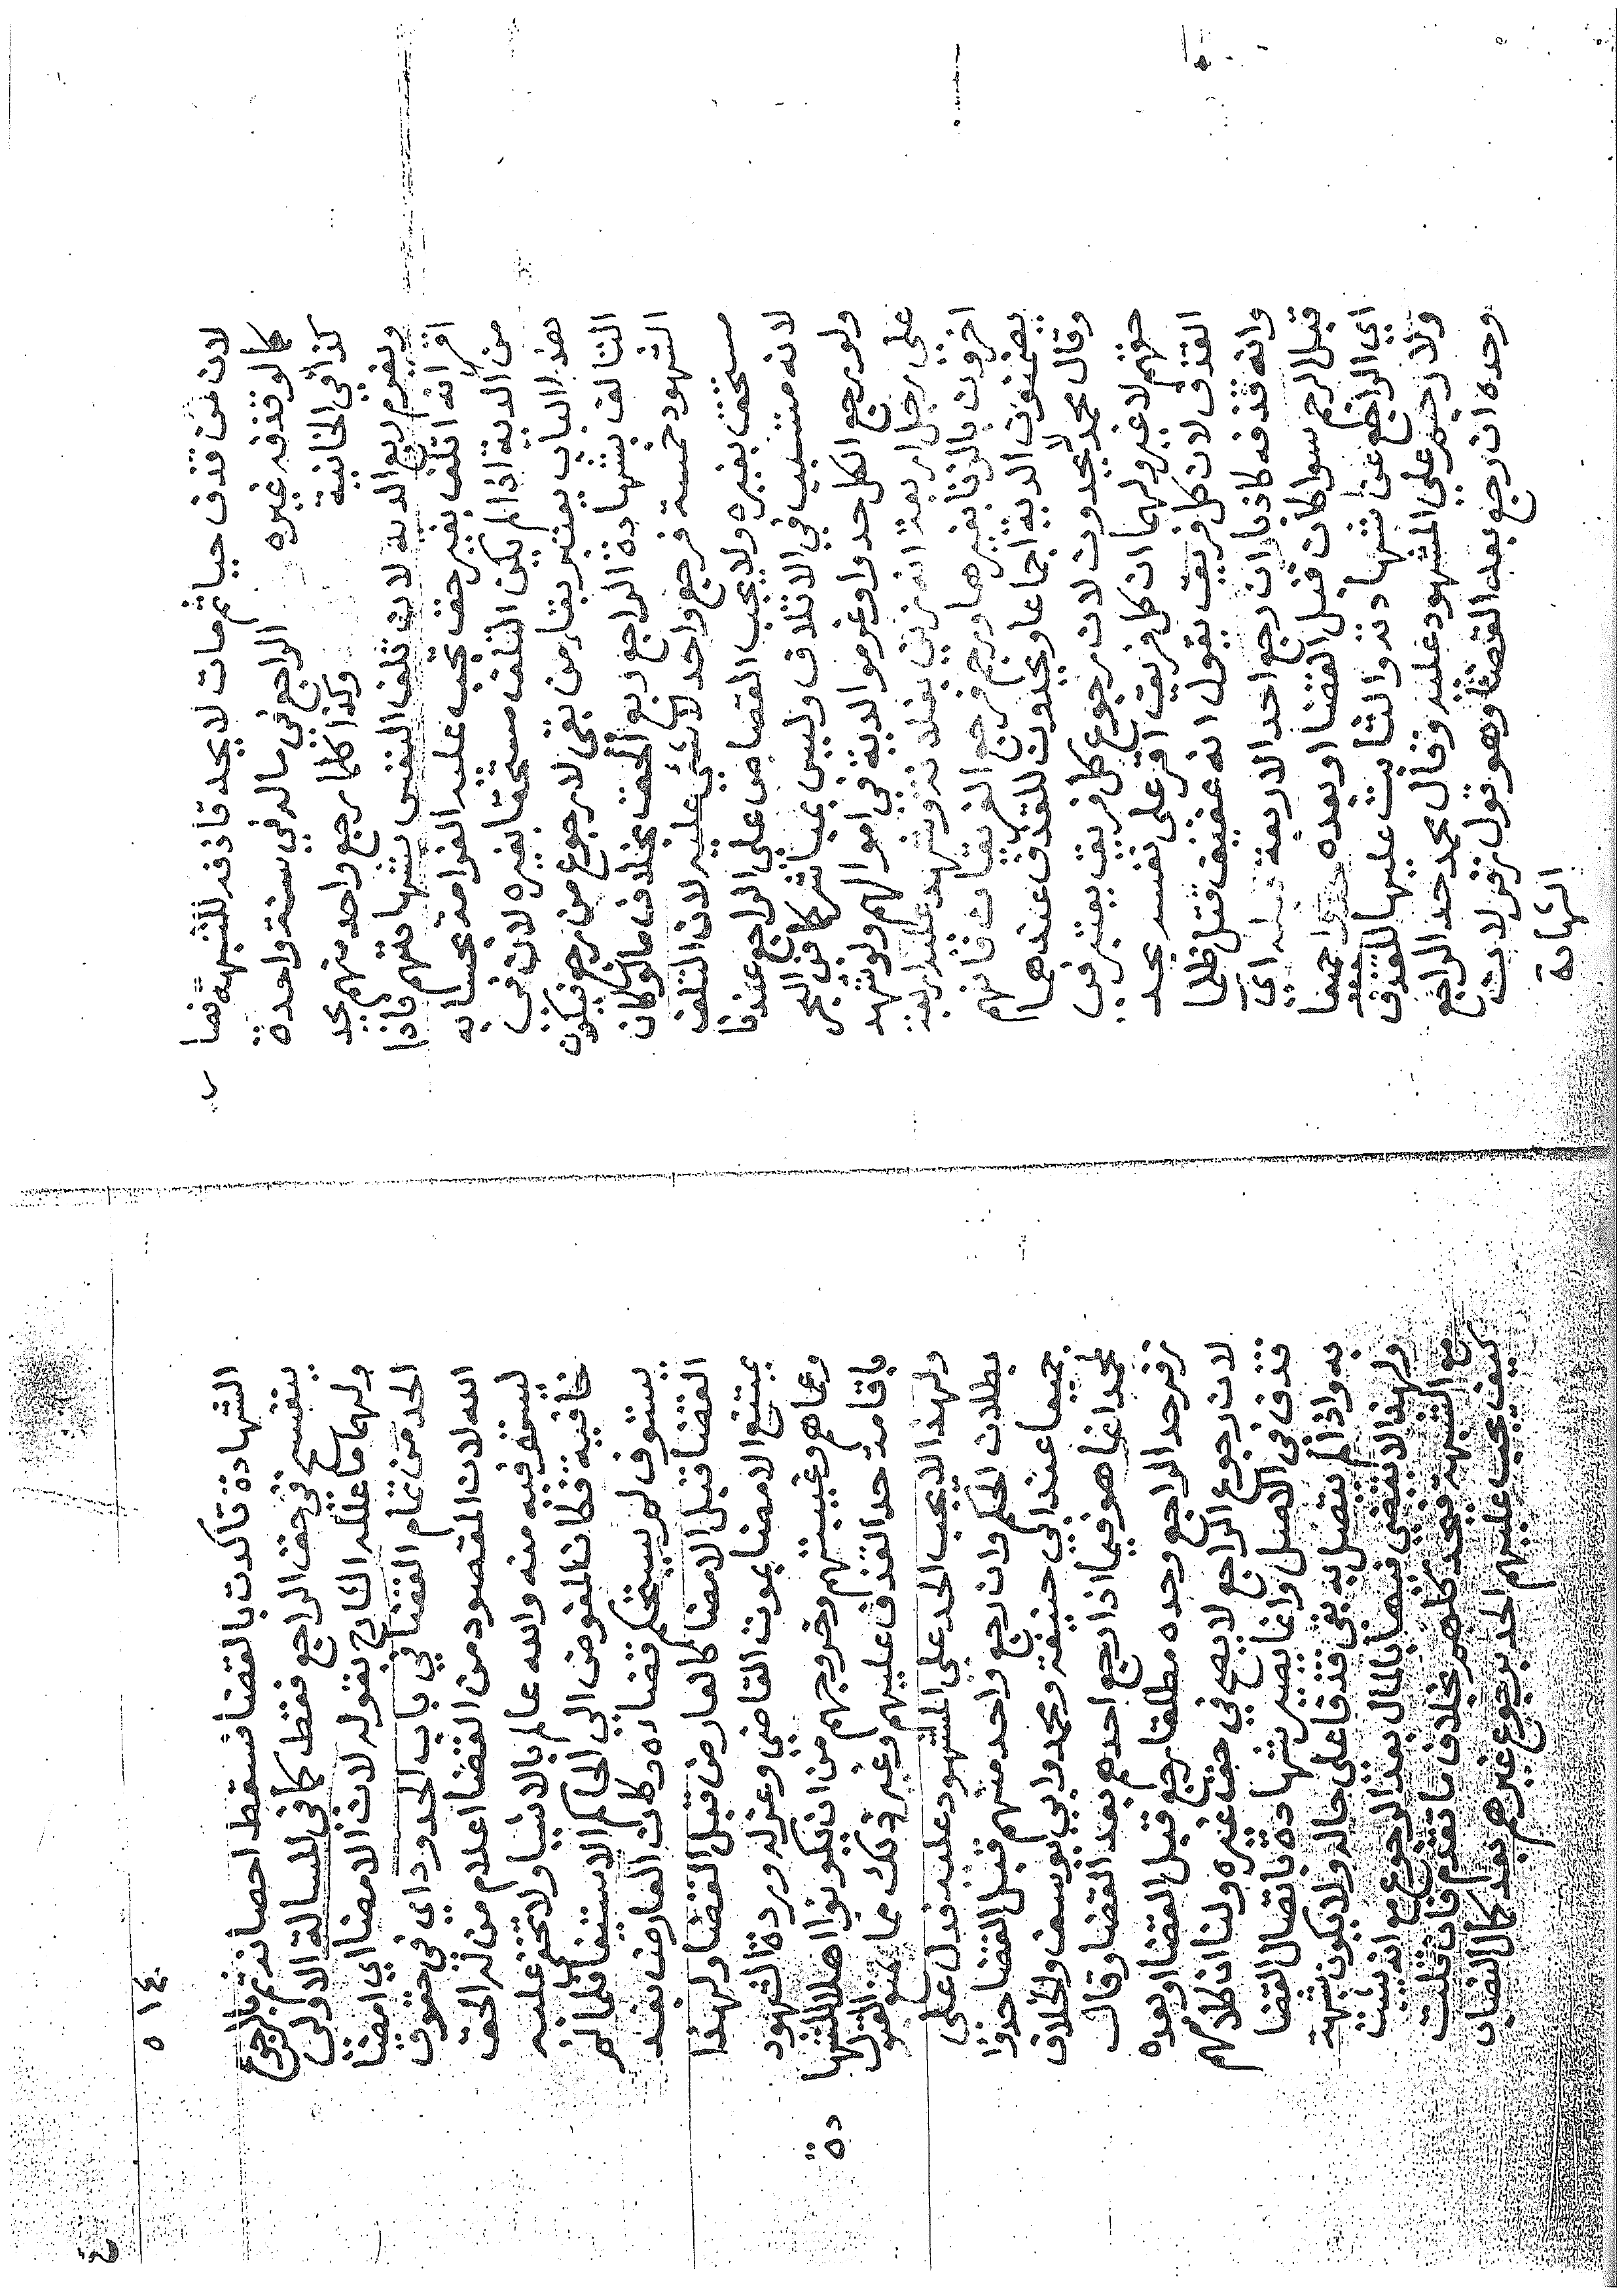 لان من قذف حيا ثم مات لا يحد قاذفه للشبهة فما
كما لو قذفه غيره الراجع في ماله في سنة واحدة
كذا في الخانية وكذا كلما رجع واحد منهم يحد
ويغرم ربع الدية لان تلف النفس بشهادتهم فاذا
اقر انه اتلف بغير حق تجب عليه الغرامة بحسابه
من الدية اذا لم يكن التلف مستحقا بغيره لان في
هذا الباب يعتبر بقا من بقي لا رجوع من رجع فيكون
التالف بشهادة الراجع ربع الحق بخلاف ما لو كان
الشهود خمسة فرجع واحد لا شي عليه لان التلف
مستحق بغيره ولا يجب القصاص على الراجع عندنا
لانه متسبب في الاتلاف وليس بمباشر كحافر البير
ولو رجع الكل حدوا وغرموا الدية في اموالهم ولو شهد
على رجل اربعة انه زني بفلانة وشهد عليه اربعة
اخرون بالزنا بغيرها ورجم فرجع الفريقان فانهم
يضمنون الدية اجماعا ويحدون للقذف عندهما
وقال محمد لا يحدون لان رجوع كل فريق يعتبر في
حقهم لا غير ولهما ان كل فريق اقر على نفسه بحد
القذف لان كل فريق يقول انه عفيف قتل ظلما
وانه قذفه كاذبا وان رجع احد الاربعة قبله اي
قبل الرجم سوا كان قبل القضا او بعده حدوا جميعا
اي الراجع عن شهادته والثابت عليها للقذف
ولا رجم على المشهود عليه وقال محمد حد الراجع
وحده ان رجع بعد القضا وهو قول زفر لان
الشهادة
١٤٠
٥
الشهادة تاكدت بالقضا فسقط احصانه ثم بالرجوع
ينفسخ في حق الراجع فقط كما في المسالة الاولى
ولهما ما علله الشارح بقوله لان الامضا اي امضا
الحد من تمام القضا في باب الحدود اي في حقوق
الله لان المقصود من القضا اعلام من له الحق
ليستوفيه منه والله عالم بالاشيا ولا تخفى عليه
خافية فكان المفوض الى الحاكم الاستيفا فلما لم
يستوف لم يستحكم قضاؤه وكان العارض بعد
القضا قبل الامضا كالعارض قبل القضا ولهذا
يمتنع الامضا بموت القاضي وعزله وردة الشهود
وعماهم وغيبتهم وخروجهم من ان يكونوا اهلا للشها
دة
باقامة حد القذف عليهم وغير ذلك مما يمنع القبول
ولهذا لا يجب الحد على المشهود عليه فدل على
بطلان الحكم وان رجع واحد منهم قبل القضا حدوا
جميعا عند ابي حنيفة ومحمد وابي يوسف والخلاف
لمحمد انما هو فيما اذا رجع احدهم بعد القضا وقال
زفر حد الراجع وحده مطلقا رجع قبل القضا او بعده
لان رجوع الراجع لا يصح في حق غيره ولنا ان كلامهم
قذف في الاصل وانما يصير شهادة باتصال القضا
به واذا لم يتصل به بقي قذفا على حاله ولا يكون شبهة
ولهذا لا يقضي فيها بالمال بعد الرجوع مع انه يثبت
مع الشبهة فيحد كلهم بخلاف ما تقدم فان قلت
كيف يجب عليهم الحد برجوع غيرهم بعد كمال النصاب